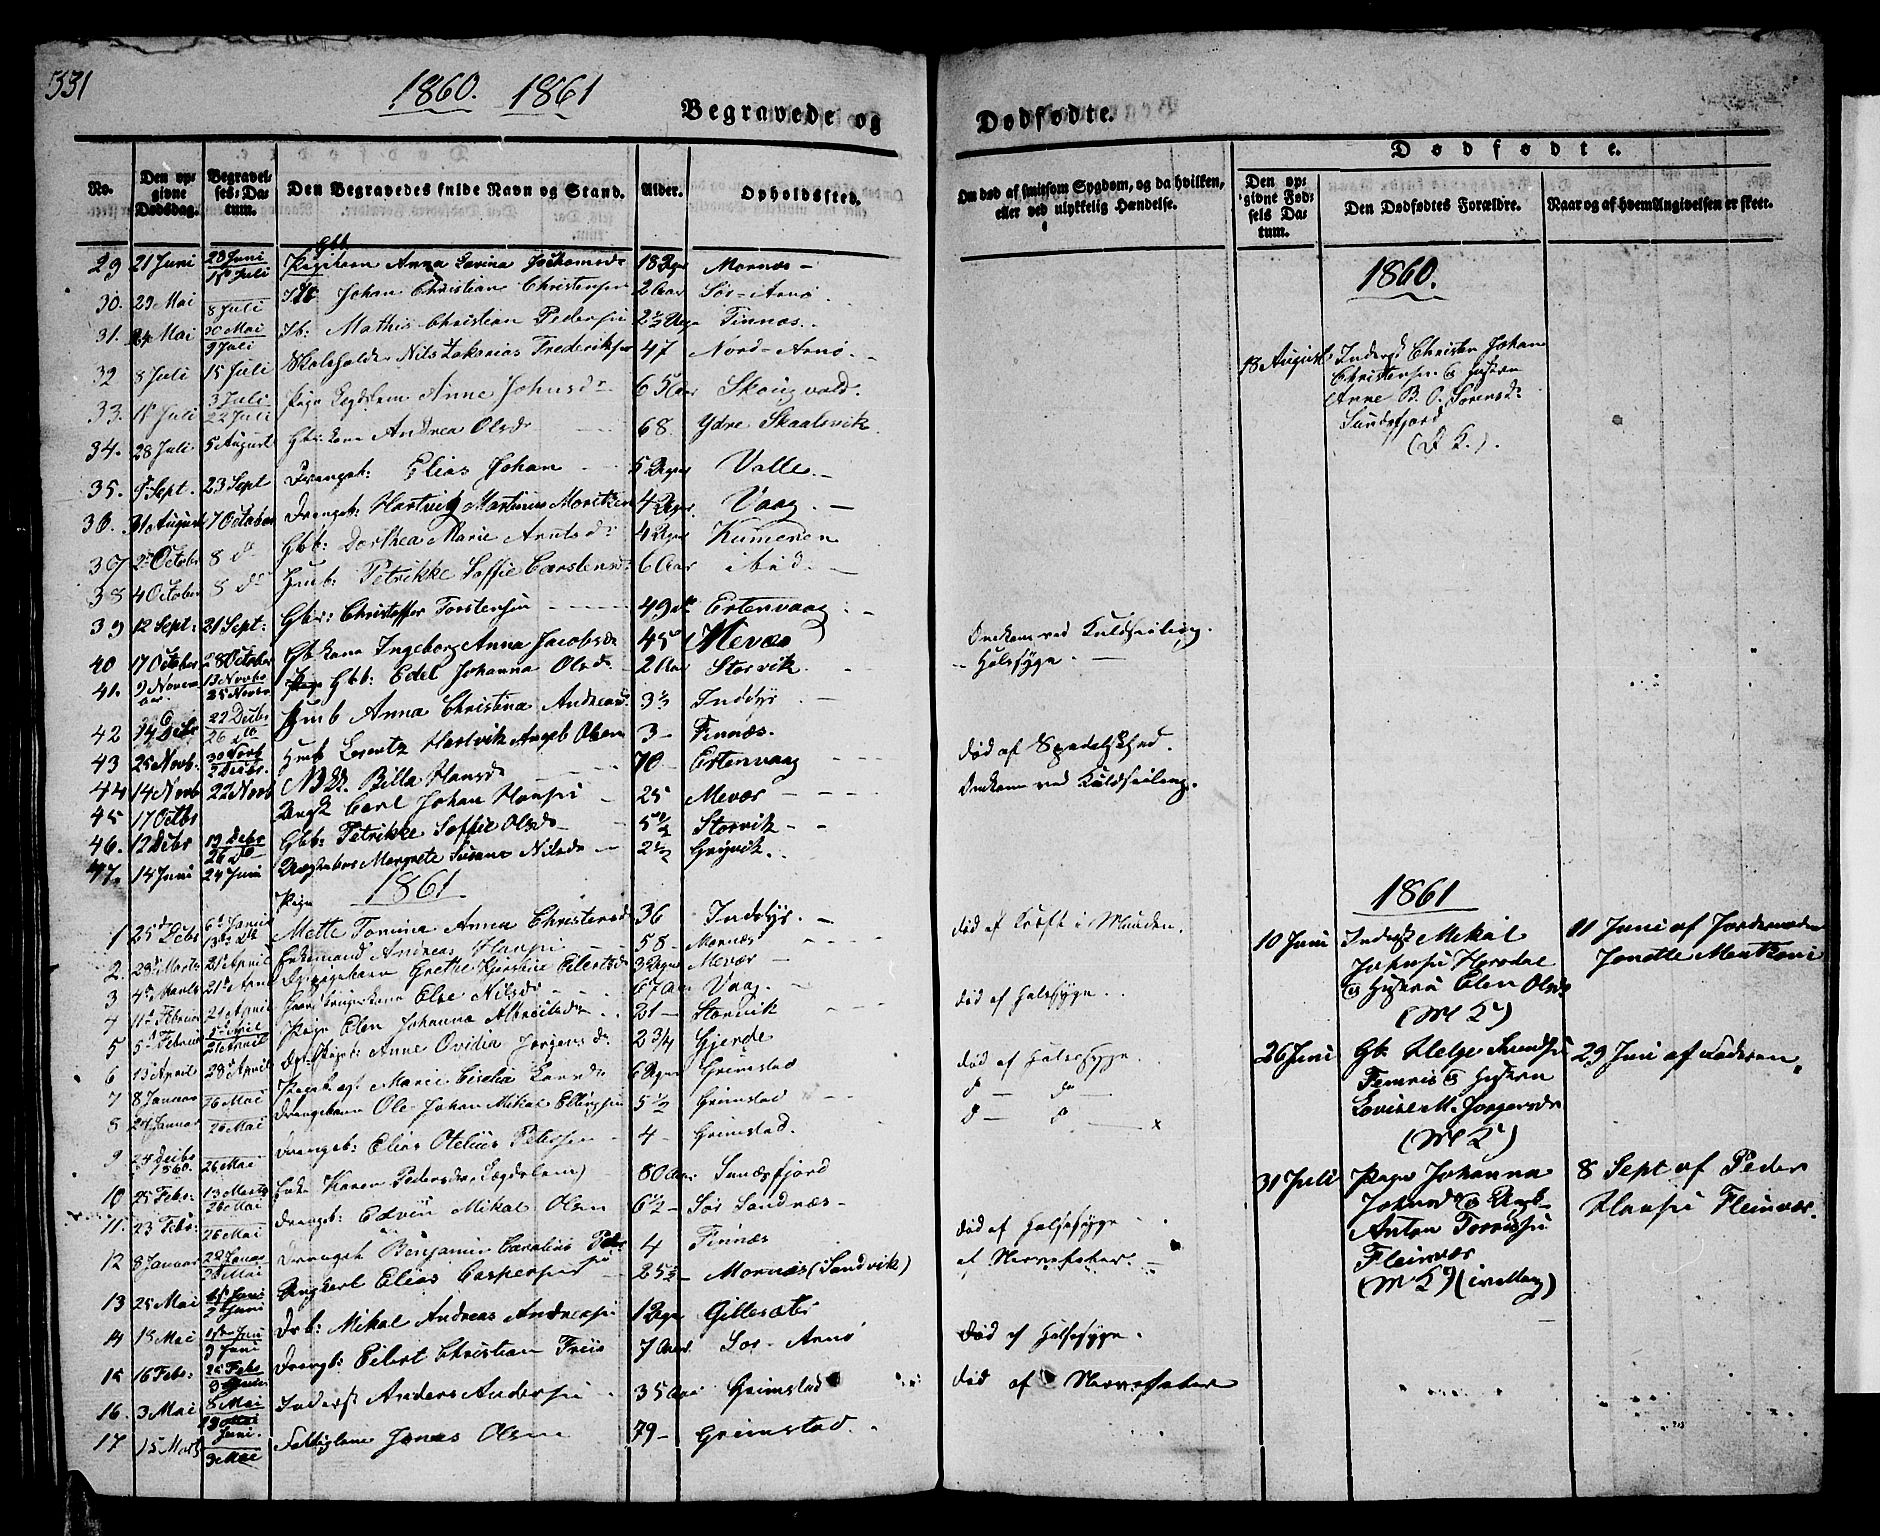 331
1860. 1861
Begravede og Dødfødte.
No.
Den opgivne Dødsdag.
Begravelses-Datum.
Den Begravedes fulde Navn og Stand.
Alder.
Opholdssted.
Om død af smitsom Sygdom, og da hvilken, eller ved ulykkelig Hændelse.
Dødfødte.
Den opgivne Fødsels Datum.
Den Dødfødtes Forældre.
Naar og af hvem Angivelsen er skeet.
29 21 Juni 23 Juni 1st Juli Anna Lovina 18 Mornæs
30. 29 Mai 8 Juli Johan Christian Christensen 2 Aar Sør-Arnø.
31. 24 Mai 30 Mai 9 Juli Mathis Christian Pedersen 2½ Finnæs.
32 8 Juli 15 Juli Nils Zakarias Frederiksen 47 Nord-Arnø.
33. 1st Juli 3 Juli 22 Juli Anne Johnsd. 65 Aar Skougvold.
34. 28 Juli 5 August Gbr. kone Andrea Olsd. 68. Ydre Skaalsvik.
35. Sept. 23 Sept Drengeb: Elias Johan 5 Valle.
36. 31 August 7 October Drengeb: Hartvig Martinus 4 Vaag.
37 2 October 8 do Gbb: Dorthea Marie Arntsd: 4 Kumeren
38 4 October 8 do Petrikke Soffie Carstensd: 6 Aar ibid.
39 12 Sept: 21 Sept: Gbr: Christoffer Torstensen 49 Ertenvaag
40 17 October 28 October Gbr kone Ingeborg Anna Jacobsd. 45 Mevær Omkom ved Kuldseiling.
41. 9 Novem 25 Novbr Gbb: Edel Johanna Olsd. 2 Aar Storvik Halssyge.
42 22 Decbr 26 do Anna Christina Andreasd. 3½ Inddyr
43 25 Novb. 30 Novb 2 Decbr. Lorentz Hartvik Olsen 3 Finnæs.
44 14 Novb 22 Novb Billa Hansd. 70 Ertenvaag død af Spedalskhed.
45 17 Octbr Carl Johan Hansen 25 Mevær Omkom ved Kuldseiling.
46. 12 Decbr 19 Decbr 26 do Gbb: Petrikke Soffie Olsd. 5½ Storvik
47. 14 Juni 24 Juni Margrete Susana Nilsd. 2½ Grigvik.
1861
1 25 Decbr 6 Januar Pige Mette Tomina Anna Christensd. 36 Inddyr død af Kræft i Munden.
2. 28 Marts 21 April Enkemand Andreas Hansen 58 Mornæs
3 4 Marts 21 April Grethe Kjerstine Eilertsd. 3 Mevær
4 11 Februar 21 April Else Nilsd. 67 Aar Vaag. død af Halssyge
5 5 Februar 21 April Pige Elen Johanna Albrigtsd. 21 Storvik
6 13 April 28 April Anne Ovidia Jørgensd. 2¾ Gjerde
7 8 Januar 26 Mai Marie Cicelia 6 Grimstad død af Halssyge.
8 24 Januar 26 Mai Drengebarn Ole Johan Mikal Ellingsen 5½ Grimstad do do
9 24 Decbr 1860. 26 Mai Drengeb: Elias Otelius Petersen 4 Grimstad. x
10 25 Febr: 13 Marts 26 Mai Enke Karen Pedersdr. (Lægdslem) 80 Aar Sundsfjord
11. 23 Febr: 26 Mai Drengeb: Edvin Mikal Olsen 6½ Sør Sandnæs
12 8 Januar 26 Mai Drengeb Benjamin Carolius 4 Finnæs død af Halssyge
13 25 Mai 2 Juni Ungkarl Elias Caspersen 25½ Mornæs (Sandvik) af Nervefeber.
14 18 Mai 9 Juni Drb: Mikal Andreas Andreasen 1 Gillesæter
15 16 Febr: 25 Febr 9 Juni Drengb: Eilert Christian Friis 7 Aar Sør-Arnø død af Halssyge.
16. 3 Mai 8 Mai Inderst Anders Andersen 35 Aar Grimstad død af Nervefeber
17 15 Marts 9 Mai Fattiglem Jonas Olsen 79 Grimstad.
1860.
18 August Inderst Christen Johan
Christensen & Hustru
Anne B. O. Sørensd.
Sundsfjord
(D. K.).
1861
10 Juni Inderst Mikal
Johnsen Horsdal
& Hustru Elen Olsd.
11 Juni af Jordemoder
26 Juni Gb. Helge Knudsen
Femris & Hustru
Lovise M. Jørgensdr
29 Juni af Faderen
31 Juli Pige Johanna
Johnsd & Ungk.
Anton
Fleinvær
8 Sept af Peder
Hansen Fleinvær.